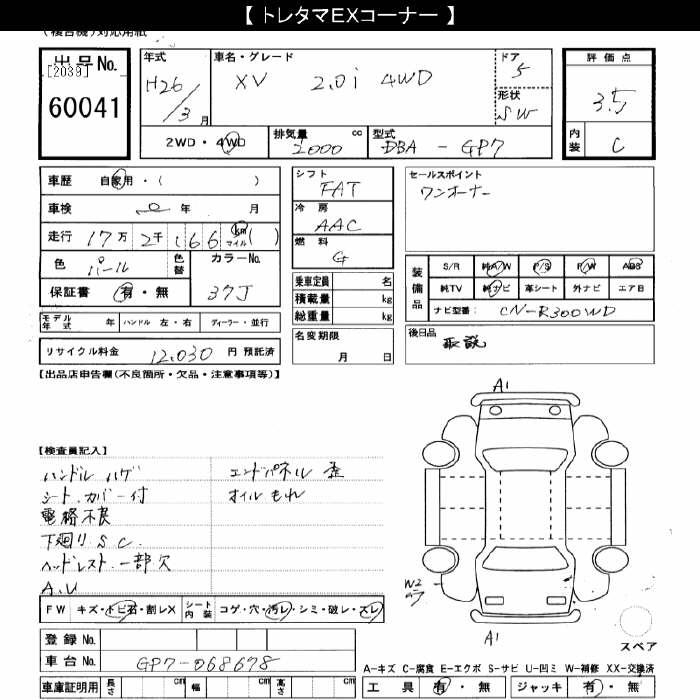 【 トレタマEXコーナー 】
(複合機)対応用紙
出品No.
[2039]
60041
年式
H26/3月
車名・グレード
XV 2.0i 4WD
ドア
5
形状
SW
評価点
3.5
内装
C
2WD・4WD
排気量 cc
2000
型式
DBA - GP7
車歴 自家用・( )
車検 0年 月
走行 17万 2千 166 km マイル ( )
色 パール
色替
カラーNo.
37J
保証書 有・無
モデル年式 年 ハンドル 左・右 ディーラー・並行
リサイクル料金 12,030 円 預託済
シフト
FAT
冷房
AAC
燃料
G
乗車定員 名
積載量 kg
総重量 kg
名変期限
月 日
セールスポイント
ワンオーナー
装備品
S/R 純A/W P/S P/W ABS
純TV 純ナビ 革シート 外ナビ エアB
ナビ型番: CN-R300WD
後日品
取説
【出品店申告欄(不良箇所・欠品・注意事項等)】
【検査員記入】
ハンドル ハゲ
シート.カバー付
電格不良
下廻り S.C.
ヘッドレスト.一部欠
A.U
エンドパネル 歪
オイルもれ
A1
W2
A1
スペア
FW キズ・トビ石・割レX
シート内装 コゲ・穴・汚レ・シミ・破レ・スレ
登録No.
車台No. GP7-068678
車庫証明用 長さ cm 幅 cm 高さ cm
A-キズ C-腐食 E-エクボ S-サビ U-凹ミ W-補修 XX-交換済
工具 有・無 ジャッキ 有・無